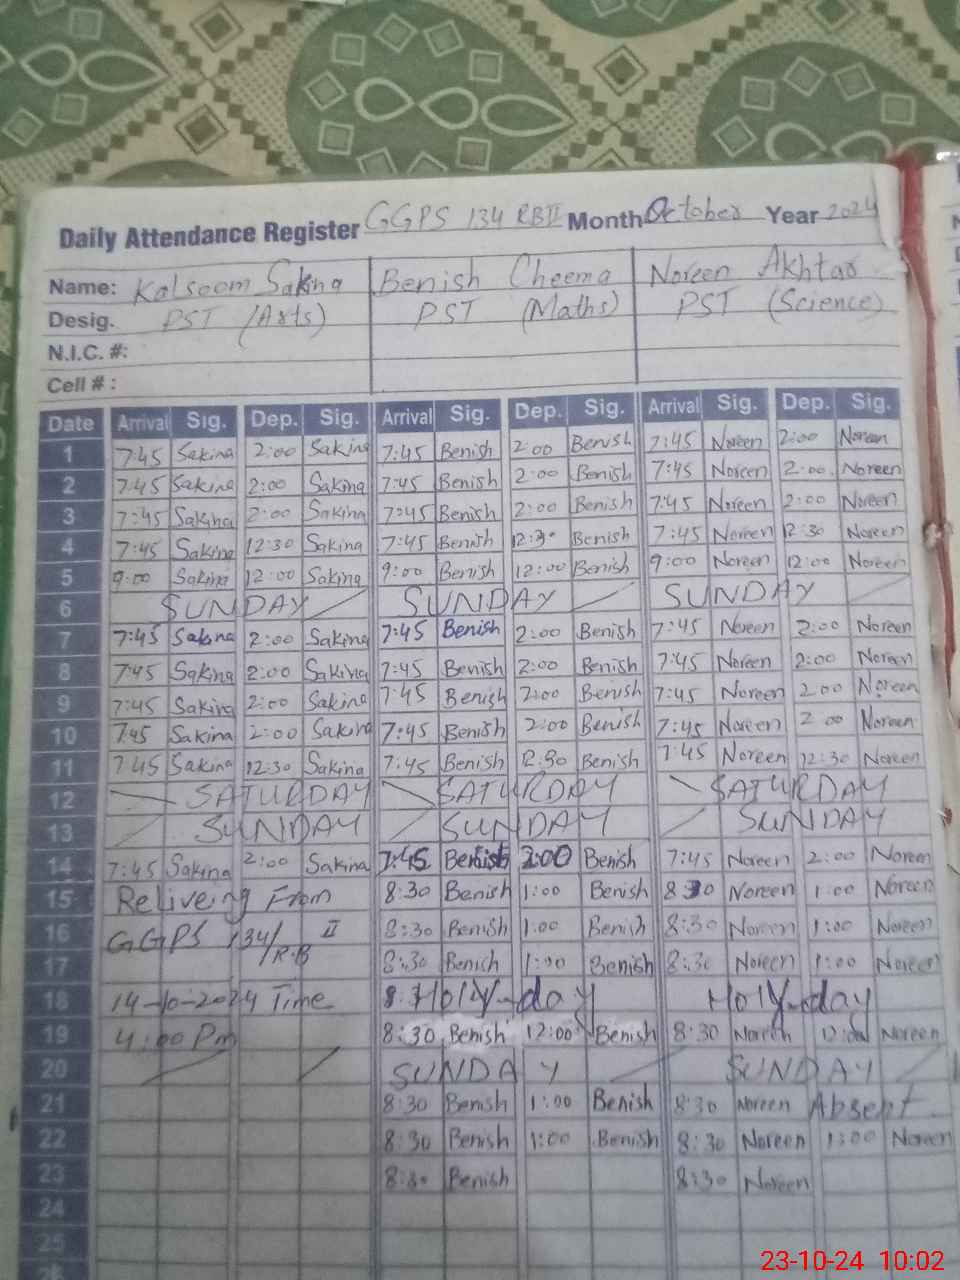 Daily Attendance Register GGPS 134 RBII Month October Year 2024
Name: Kalsoom Sakina Benish Cheema Noreen Akhtar
Desig. PST (Arts) PST (Maths) PST (Science)
N.I.C. #:
Cell # :
Date Arrival Sig. Dep. Sig. Arrival Sig. Dep. Sig. Arrival Sig. Dep. Sig.
1 7:45 Sakina 2:00 Sakina 7:45 Benish 2:00 Benish 7:45 Noreen 2:00 Noreen
2 7:45 Sakina 2:00 Sakina 7:45 Benish 2:00 Benish 7:45 Noreen 2:00 Noreen
3 7:45 Sakina 2:00 Sakina 7:45 Benish 2:00 Benish 7:45 Noreen 2:00 Noreen
4 7:45 Sakina 12:30 Sakina 7:45 Benish 12:30 Benish 7:45 Noreen 12:30 Noreen
5 9:00 Sakina 12:00 Sakina 9:00 Benish 12:00 Benish 9:00 Noreen 12:00 Noreen
6 SUNDAY SUNDAY SUNDAY
7 7:45 Sakina 2:00 Sakina 7:45 Benish 2:00 Benish 7:45 Noreen 2:00 Noreen
8 7:45 Sakina 2:00 Sakina 7:45 Benish 2:00 Benish 7:45 Noreen 2:00 Noreen
9 7:45 Sakina 2:00 Sakina 7:45 Benish 2:00 Benish 7:45 Noreen 2:00 Noreen
10 7:45 Sakina 2:00 Sakina 7:45 Benish 2:00 Benish 7:45 Noreen 2:00 Noreen
11 7:45 Sakina 12:30 Sakina 7:45 Benish 12:30 Benish 7:45 Noreen 12:30 Noreen
12 SATURDAY SATURDAY SATURDAY
13 SUNDAY SUNDAY SUNDAY
14 7:45 Sakina 2:00 Sakina 7:45 Benish 2:00 Benish 7:45 Noreen 2:00 Noreen
15 Reliveing From 8:30 Benish 1:00 Benish 8:30 Noreen 1:00 Noreen
16 GGPS 134/R.B II 8:30 Benish 1:00 Benish 8:30 Noreen 1:00 Noreen
17 8:30 Benish 1:00 Benish 8:30 Noreen 1:00 Noreen
18 14-10-2024 Time Holy-day Holy-day
19 4:00 Pm 8:30 Benish 12:00 Benish 8:30 Noreen 12:00 Noreen
20 SUNDAY SUNDAY
21 8:30 Benish 1:00 Benish 8:30 Noreen Absent
22 8:30 Benish 1:00 Benish 8:30 Noreen 1:00 Noreen
23 8:30 Benish 8:30 Noreen
24
25
26
23-10-24 10:02